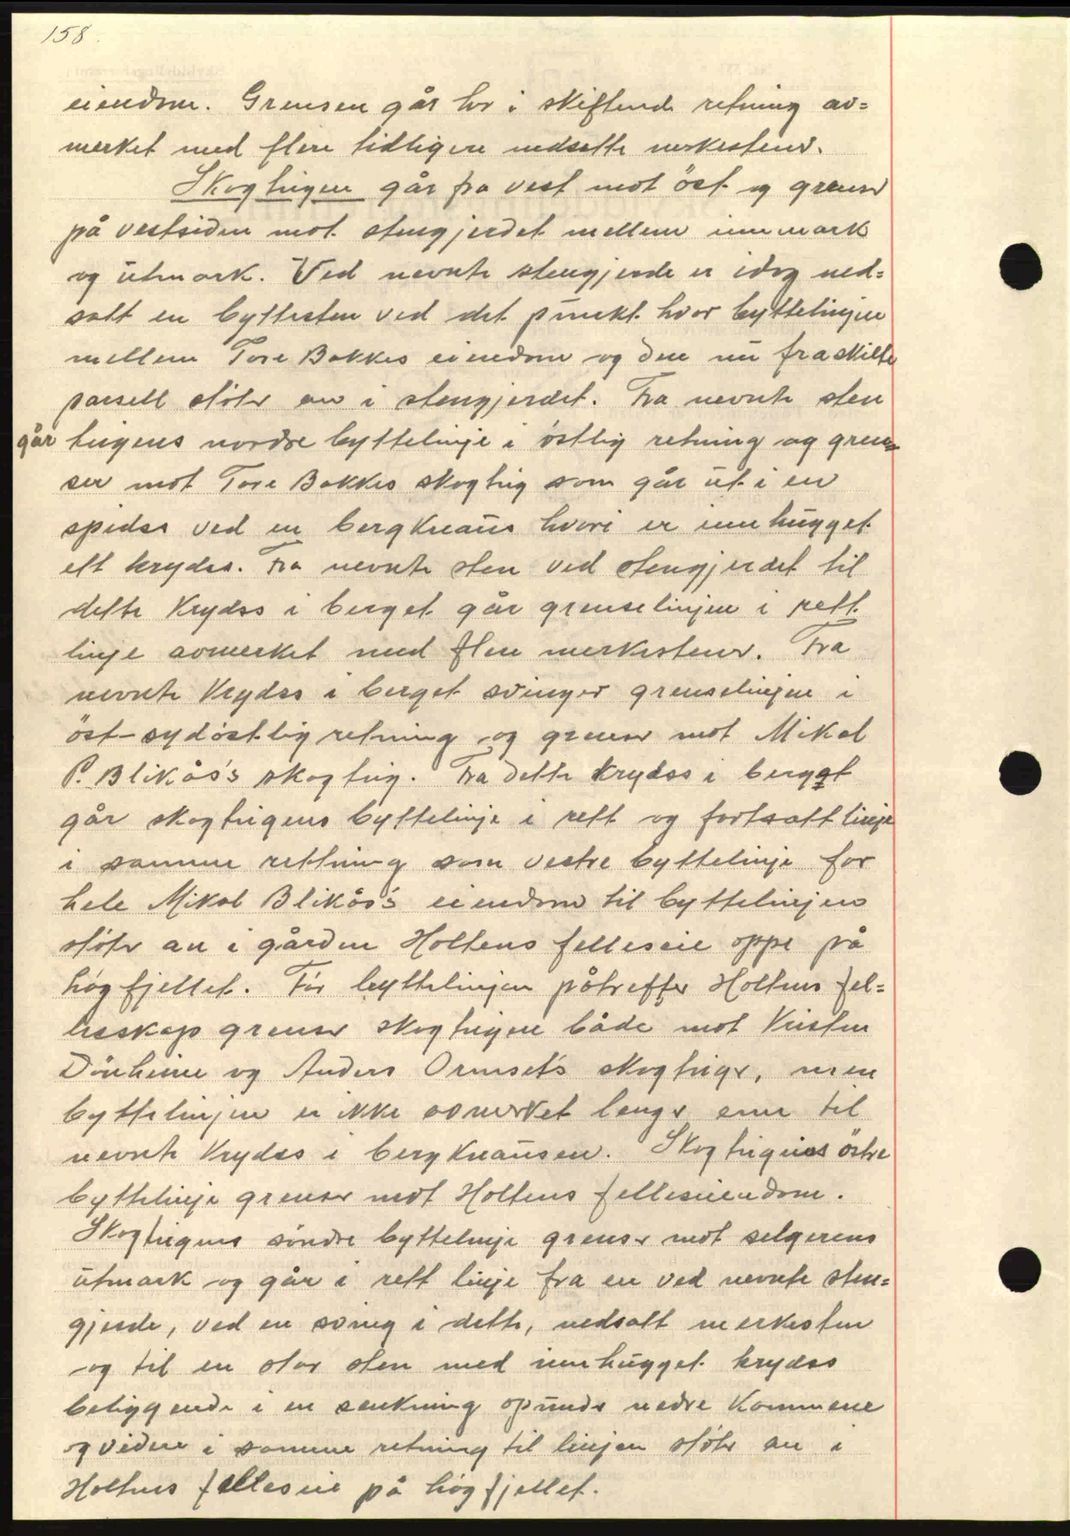 158.
eiendom. Grensen går her i skiftende retning av=
merket med flere tidligere nedsatte merkestener.
Skogteigen går fra vest mot öst og grenser
på vestsiden mot stengjerdet mellem innmark
og utmark. Ved nevnte stengjerde er idag ned=
satt en byttesten ved det punkt hvor byttelinjen
mellem Tore Bakkes eiendom og den nu fraskilte
parsell støter an i stengjerdet. Fra nevnte sten
går teigens nordre byttelinje i østlig retning og gren=
ser mot Tore Bakkes skogteig som går ut i en
spidss ved en bergknaus hvori er innhugget
ett krydss. Fra nevnte sten ved stengjerdet til
dette krydss i berget går grenselinjen i rett
linje avmerket med flere merkestener. Fra
nevnte krydss i berget svinger grenselinjen i
öst-sydöstlig retning og grenser mot Mikal
P. Blikås's skogteig. Fra dette krydss i berget
går skogteigens byttelinje i rett og fortsatt linje
i samme rettning som vestre byttelinje for
hele Mikal Blikås's eiendom til byttelinjen
støter an i gården Holtens felleseie oppe på
høgfjellet. Før byttelinjen påtreffer Holtens fel=
lesskap grenser skogteigen både mot Kristen
Dönheim og Anders Ormset's skogteiger, men
byttelinjen er ikke avmerket lenger enn til
nevnte krydss i bergknausen. Skogteigens östre
byttelinje grenser mot Holtens felleseiendom.
Skogteigens söndre byttelinje grenser mot selgerens
utmark og går i rett linje fra en ved nevnte sten=
gjerde, ved en sving i dette, nedsatt merkesten
og til en stor sten med innhugget krydss
beliggende i en senkning opunds nedre Kammene
og videre i samme retning til linjen støter an i
Holtens felleseie på høgfjellet.